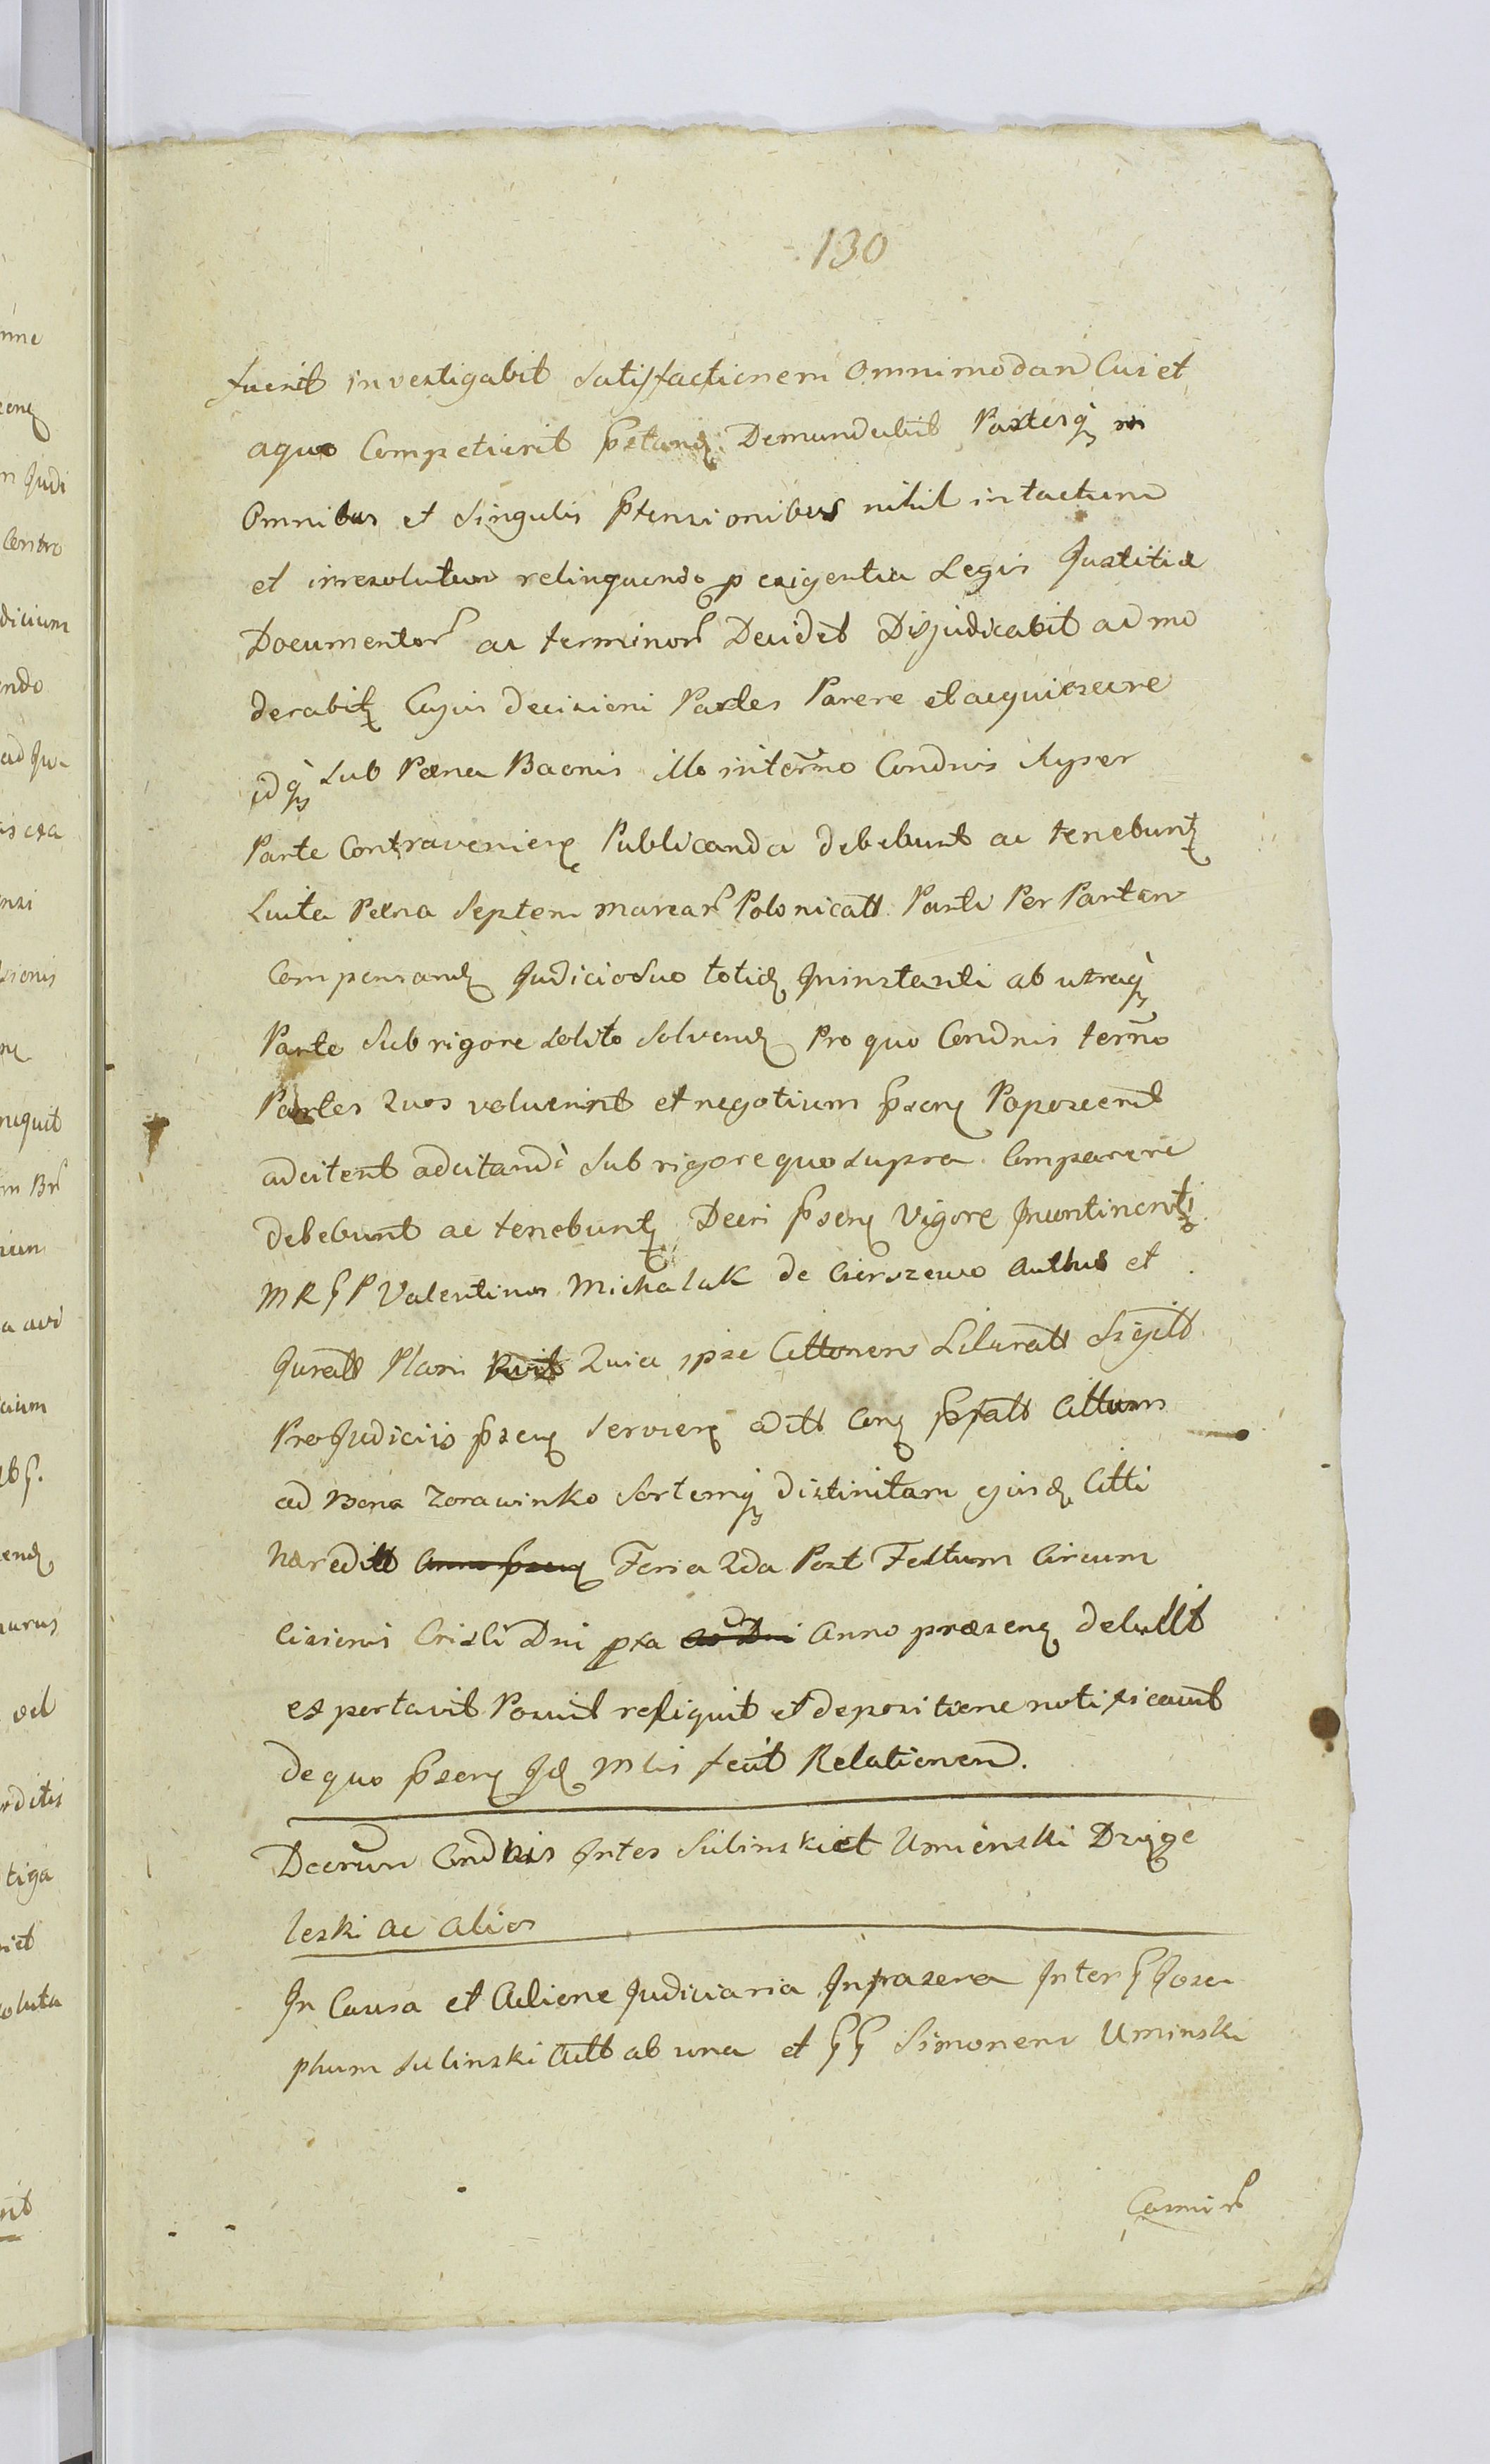 130
fuerit investigabit satisfactionem Omnimodam Cui et
aquo Competierit pstanđ Demandabit Partesq in
Omnibus et singulis ptensionibus nihil intactum
et irresolutum relinquendo p exigentia Legis Justitiæ
Documentor ac terminor Decidet Disjudicabit ac mo
derabitq Cujus decisioni Partes Parere et acquiescere
idq sub Pæna Baonis illo intermo Condnis super
Parte Contravenienꝫ Publicanda debebunt ac tenebuntꝫ
Luita Pæna Septem marcar Polonicatt Parti Per Partem
Compensandꝫ Judicio suo totidꝫ Ininstanti ab utraqꝫ
Parte sub rigore solito solvendꝫ Pro quo Condnis termo
Partes Quos voluerint et negotium psenꝫ Poposcerit
adcitent adcitandi sub rigore quo supra Comparere
debebunt ac tenebuntꝫ Decri psenꝫ Vigore Incontinenti
M R G P Valentinus Michalak de Cierszewo Authus et
Juratt Plari Quia ipse Cittonem Literatt Sigilt
Pro Judiciis psenꝫ servienꝫ editt Conꝫ psfatt Cittum
ad Bona Zorawinko sortemqꝫ distinitam ejusdꝫ Citti
hæreditt Anno psenꝫ Feria 2da Post Festum Circum
cisionis Cristi Dni pxa Anno præsenꝫ detullit
et portavit Posuit reliquit et depositione notificavit
de quo psenꝫ Idꝫ Mlis fecit Relationem.
Decrum Condnis Inter Sulinski et Umienski Dzięge
leski ac alios
In Causa et Actione Judiciaria Infrascra Inter G Jose
phum Sulinski Actt ab una et GG Simonem Uminski
Casmir